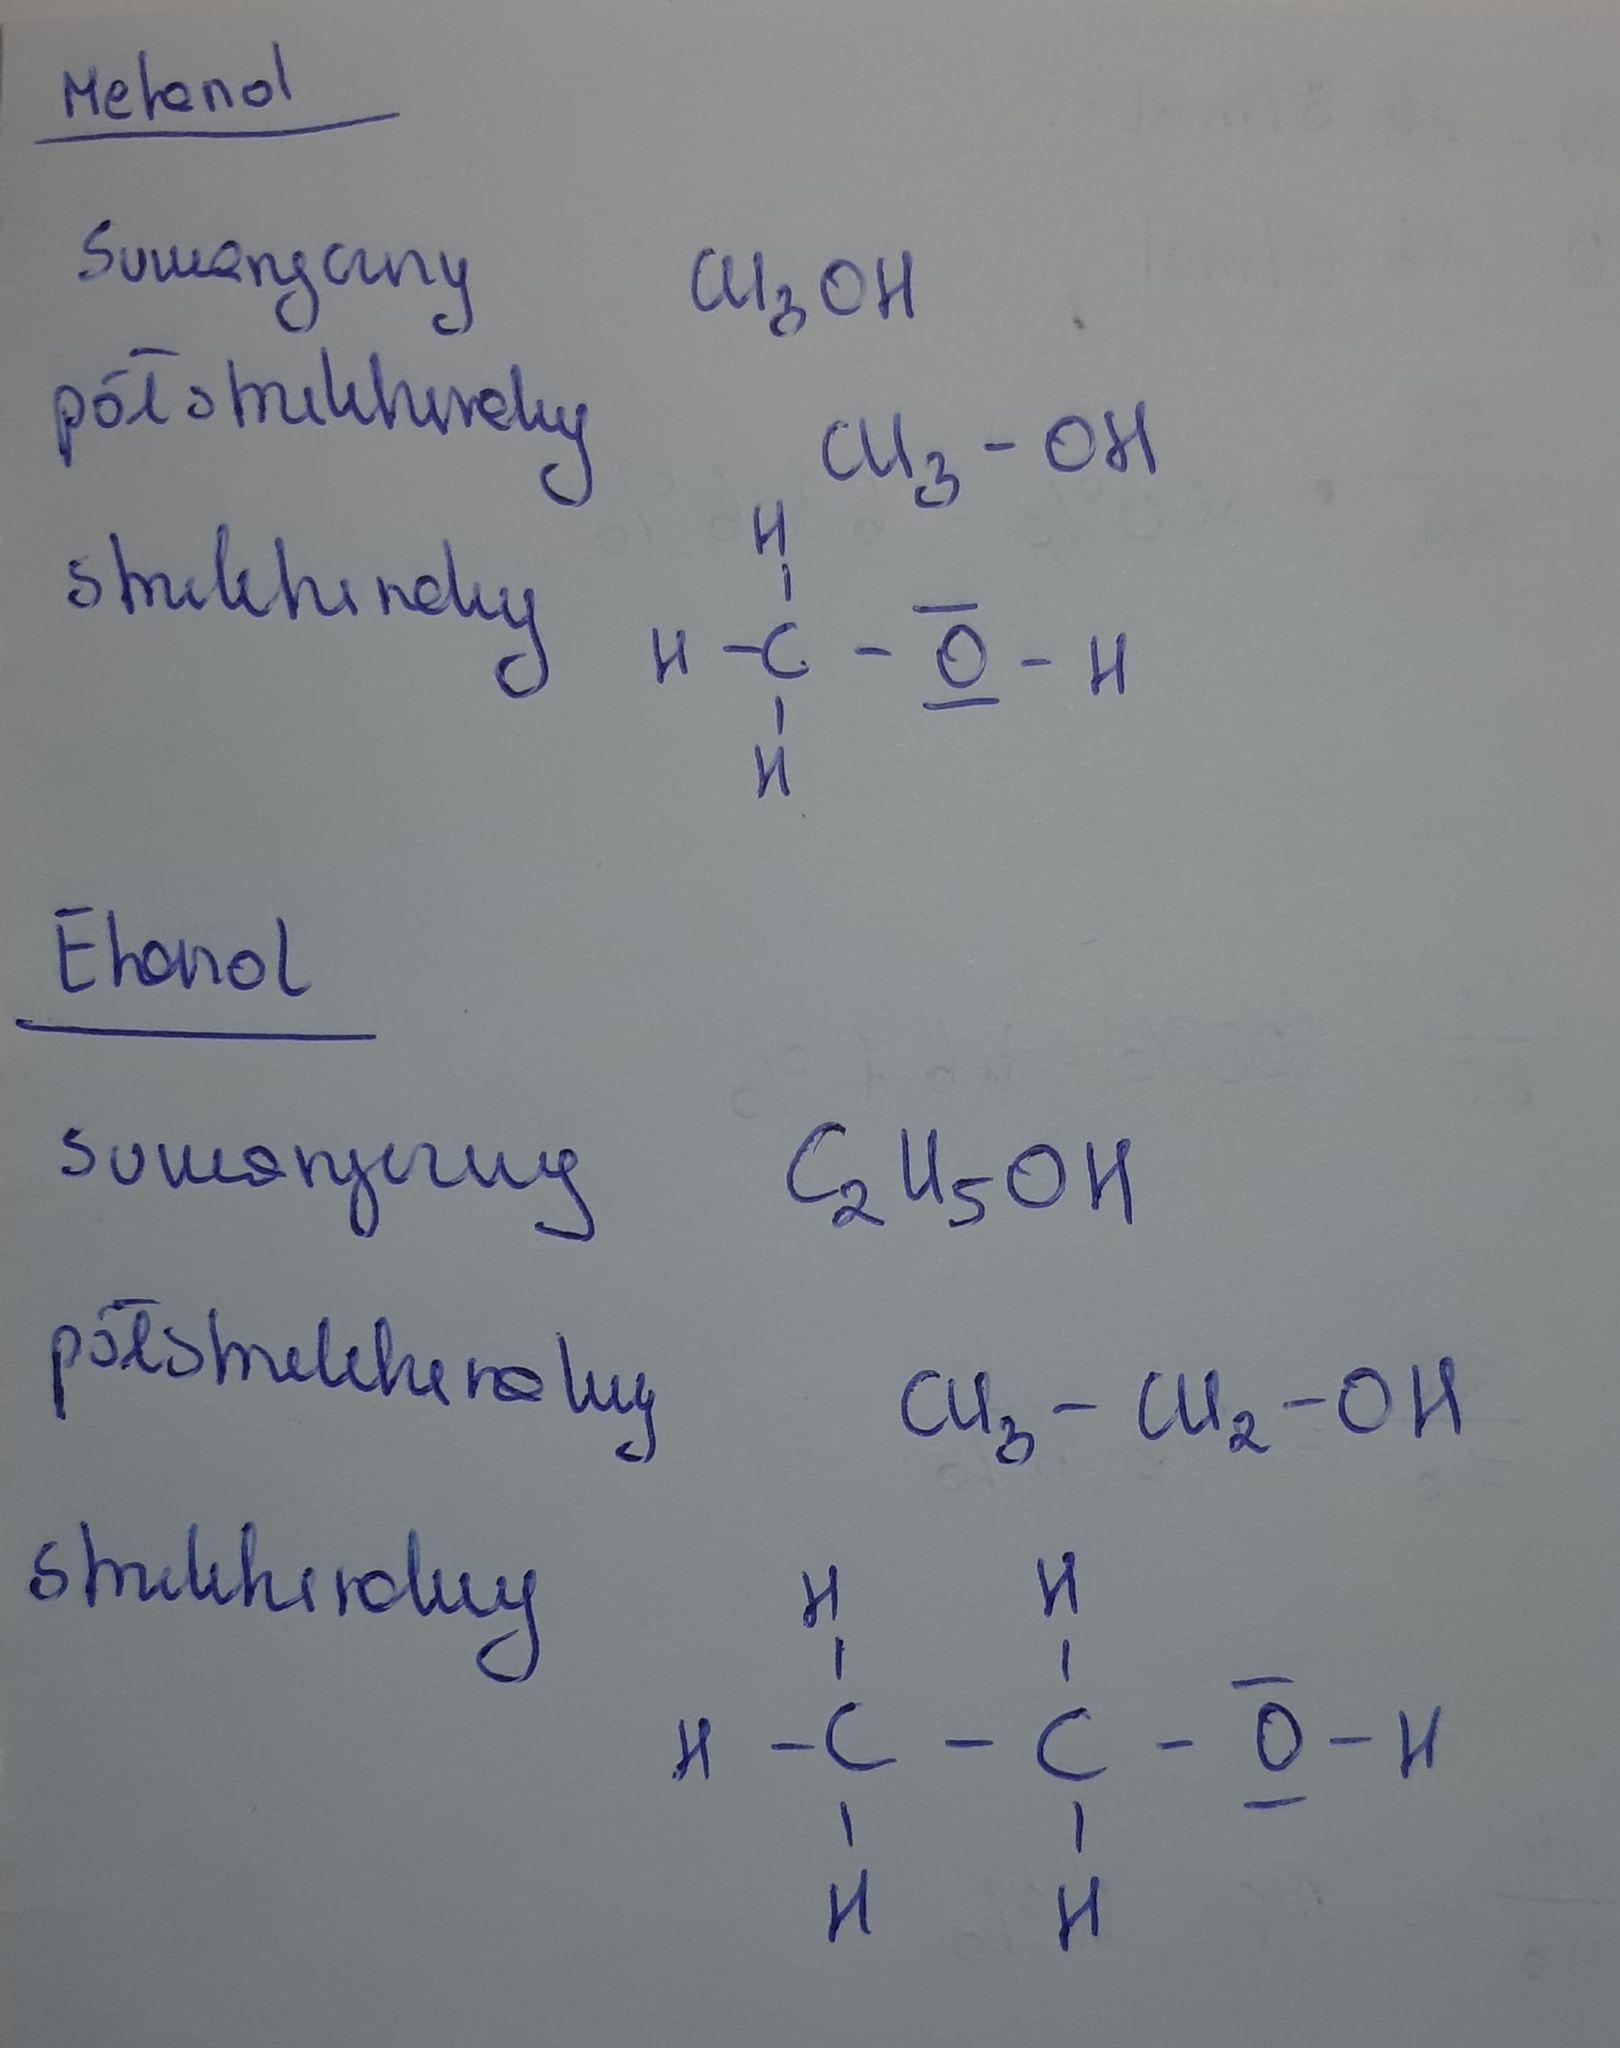 Metanol
Sumaryczny CH₃OH
półstrukturalny CH₃ - OH
strukturalny
H
|
H - C - O - H
|
H
Etanol
sumaryczny C₂H₅OH
półstrukturalny CH₃ - CH₂ - OH
strukturalny
H H
| |
H - C - C - O - H
| |
H H